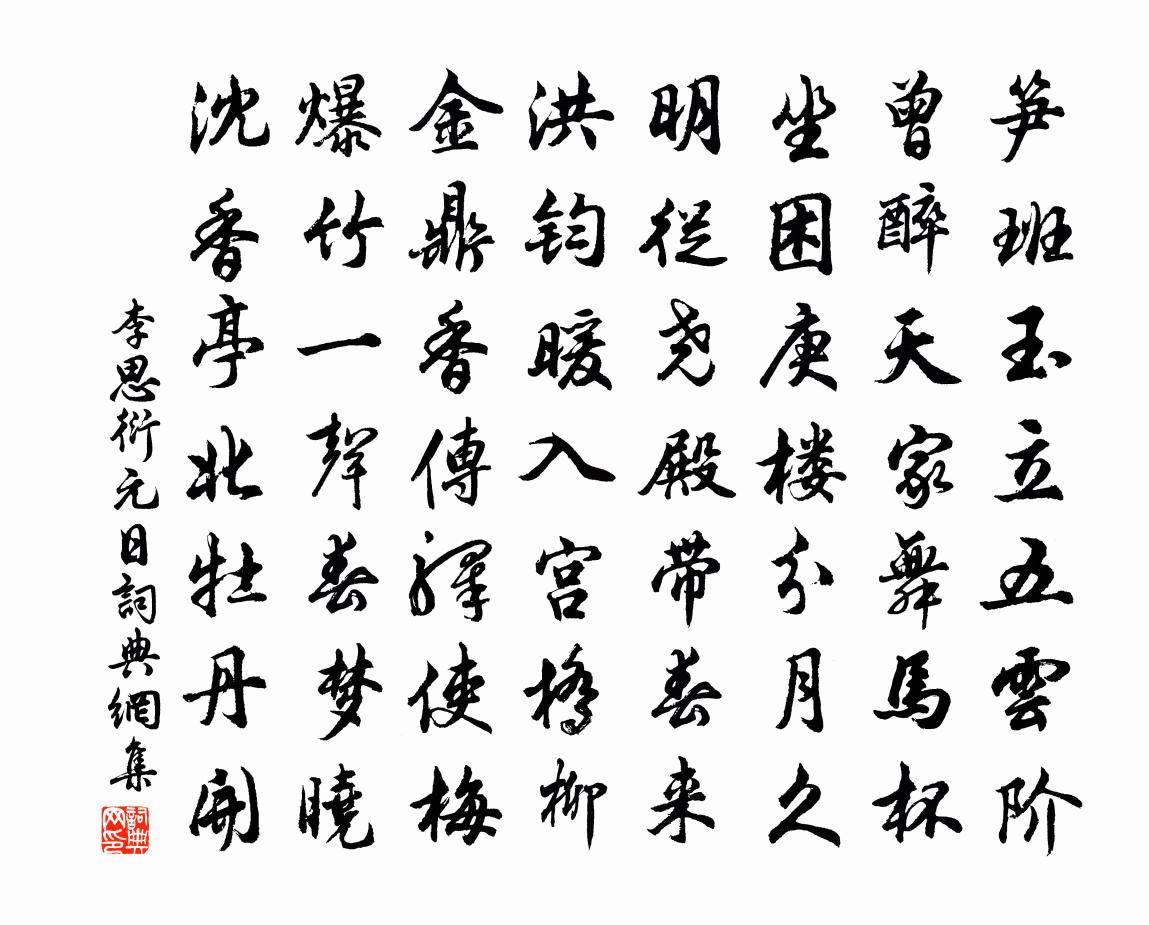 笋班玉立五雲阶
曾醉天家舞馬杯
坐困庚楼分月久
明從尧殿带春来
洪钧暖入宫橋柳
金鼎香傳驛使梅
爆竹一聲春梦曉
沈香亭北牡丹開
李思衍元日詞典網集
詞典网印